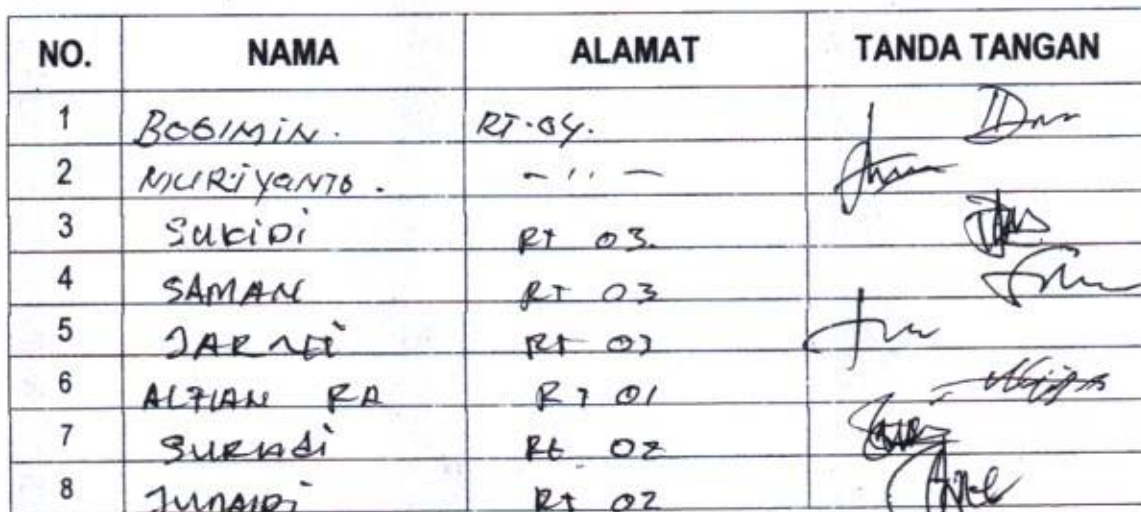 NO. NAMA ALAMAT TANDA TANGAN
1 BOGIMIN. RT.04.
2 NURIYANTO. - 11 -
3 SUKIDI RT 03.
4 SAMAN RT 03
5 RT 03
6 ALFIAN RA RT 01
7 RT 02
8 JUNAIDI RT 02